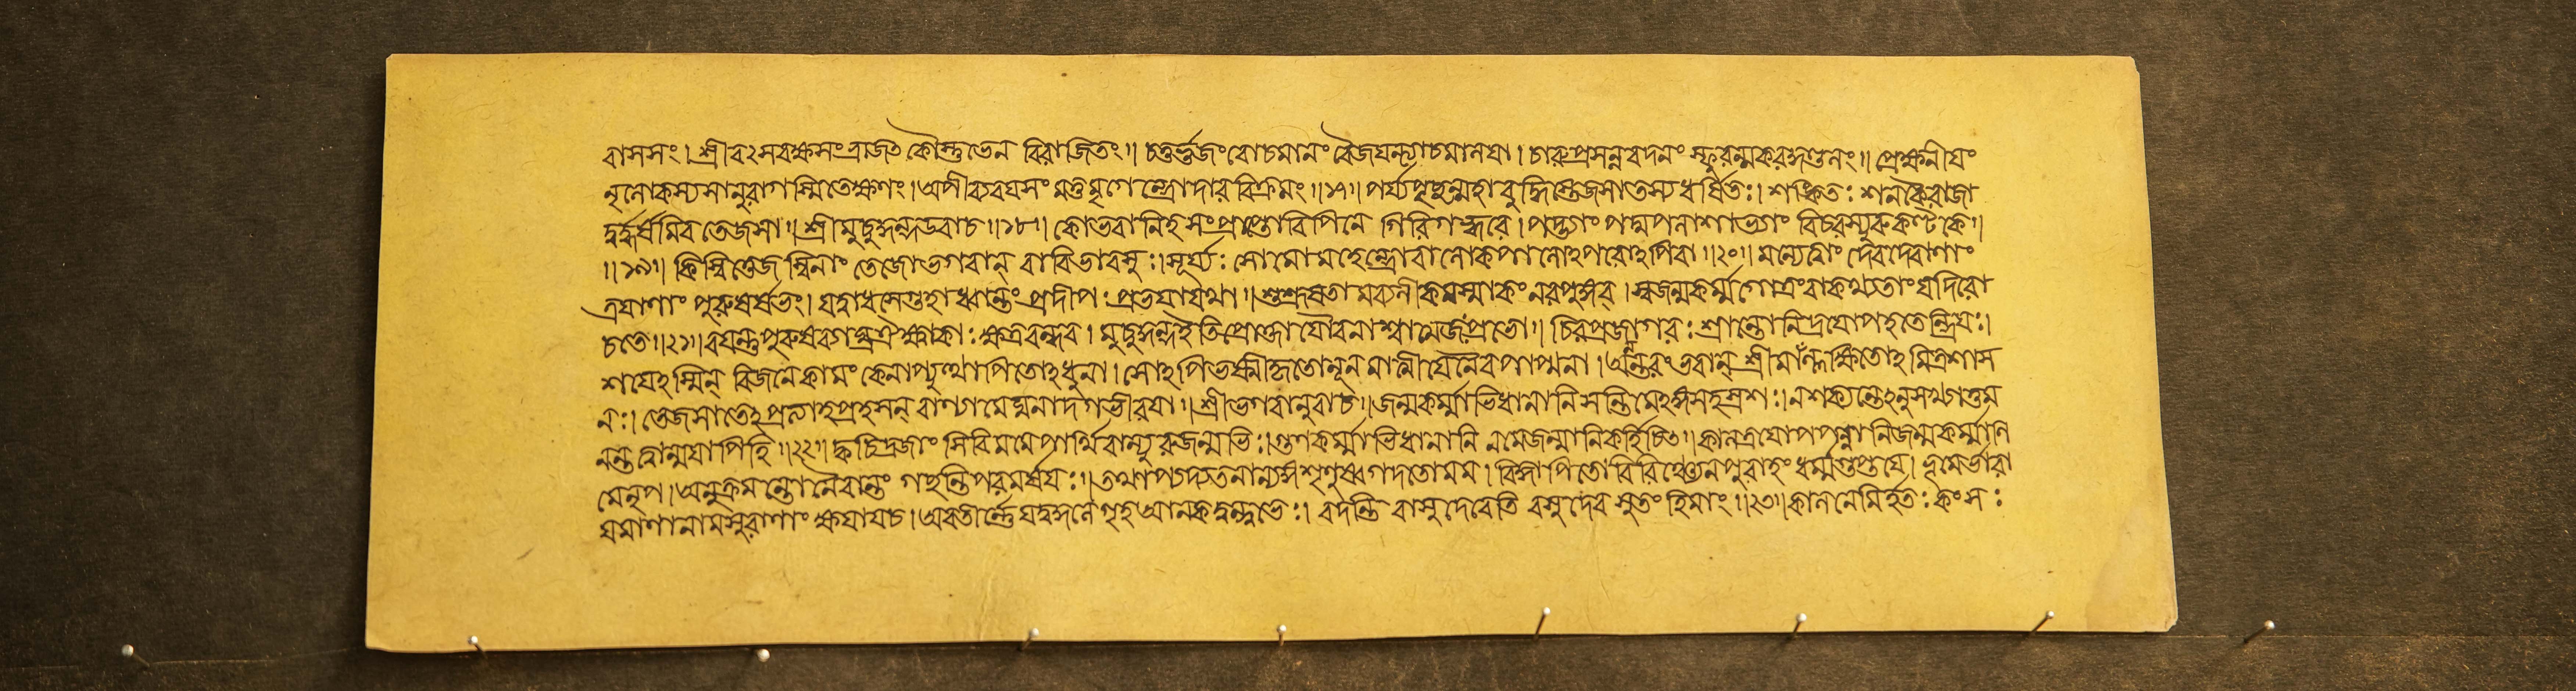 বাসসং। শ্রীবৎসবক্ষসংভ্রাজৎ কৌস্তুভেন বিরাজিতং॥ চতুর্ভুজংরোচমানং বৈজযন্ত্যাচমালযা। চারুপ্রসন্নবদনং স্ফুরন্মকরকুণ্ডলং॥ প্রেক্ষনীযং
নৃলোকস্যসানুরাগস্মিতেক্ষণং। অপীব্যবযসং মত্তমৃগেন্দ্রোদার বিক্রমং॥১৭॥ পর্য্যপৃছন্মহাবুদ্ধিস্তেজসাতস্যধর্ষিতঃ। শঙ্কিতঃ শনকৈরাজা
দুর্দ্ধর্ষমিব তেজসা॥ শ্রীমুচুকুন্দউবাচ॥১৮॥ কোভবানিহসংপ্রাপ্তোবিপিনে গিরিগহ্বরে। পদ্ভ্যাং পদ্মপলাশাভ্যাং বিচরস্যুরুকণ্টকে॥
॥১৯॥ কিংস্বিত্তেজস্বিনাং তেজোভগবান্ বাবিভাবসুঃ। সূর্য্যঃ সোমোমহেন্দ্রোবালোকপালোঽপরোঽপিবা॥২০॥ মন্যেত্বাং দেবদেবাণাং
ত্রযাণাং পুরুষর্ষভং। যদ্বাধসেগুহাধ্বান্তংপ্রদীপঃ প্রভযাযথা॥ শুশ্রূষতামব্যলীকমস্মাকং নরপুঙ্গব। স্বজন্মকর্ম্মগোত্রংবাকথ্যতাংযদিরো
চতে॥২১॥ বযন্তুপুরুষব্যাঘ্রঐক্ষ্বাকাঃ ক্ষত্রবন্ধব। মুচুকুন্দইতিপ্রোক্তোযৌবনাশ্বাত্মজঃপ্রভো॥ চিরপ্রজাগরঃ শ্রান্তোনিদ্রযোপহতেন্দ্রিযঃ।
শযেঽস্মিন্ বিজনেকামং কেনাপ্যুত্থাপিতোঽধুনা। সোঽপিভস্মীকৃতোনূনমাত্মীযেনৈবপাপ্মনা। অনন্তরং ভবান্ শ্রীমাঁল্লক্ষিতোঽমিত্রশাস
নঃ। তেজসাতেঽ শ্রীভগবানুবাচ॥ জন্মকর্ম্মাভিধানানি সন্তিমেঽঙ্গসহস্রশঃ। নশক্যন্তেঽনুসংখ্যাতুম
নন্তত্বান্মযাপিহি॥২২॥ ক্বচিদ্রজাংসিবিমমেপার্থিবান্যুরুজন্মভিঃ। গুণকর্ম্মাভিধানানি নমেজন্মানিকর্হিচিৎ॥ কালত্রযোপপন্নানিজন্মকর্ম্মাণি
মেনৃপ। অনুক্রমন্তোনৈবান্তং গছন্তিপরমর্ষযঃ॥ তথাপ্যদ্যতনান্যঙ্গশৃণুষ্বগদতোমম। বিজ্ঞাপিতোবিরিঞ্চেনপুরাহং ধর্ম্মগুপ্তযে। ভূমের্ভারা
যমাণানামসুরাণাং ক্ষযাযচ। অবতীর্ণো যদুকুলে গৃহ আনকদুন্দুভেঃ। বদন্তি বাসুদেবেতি বসুদেব সুতং হিমাং॥২৩॥ কালনেমির্হতঃ কংসঃ